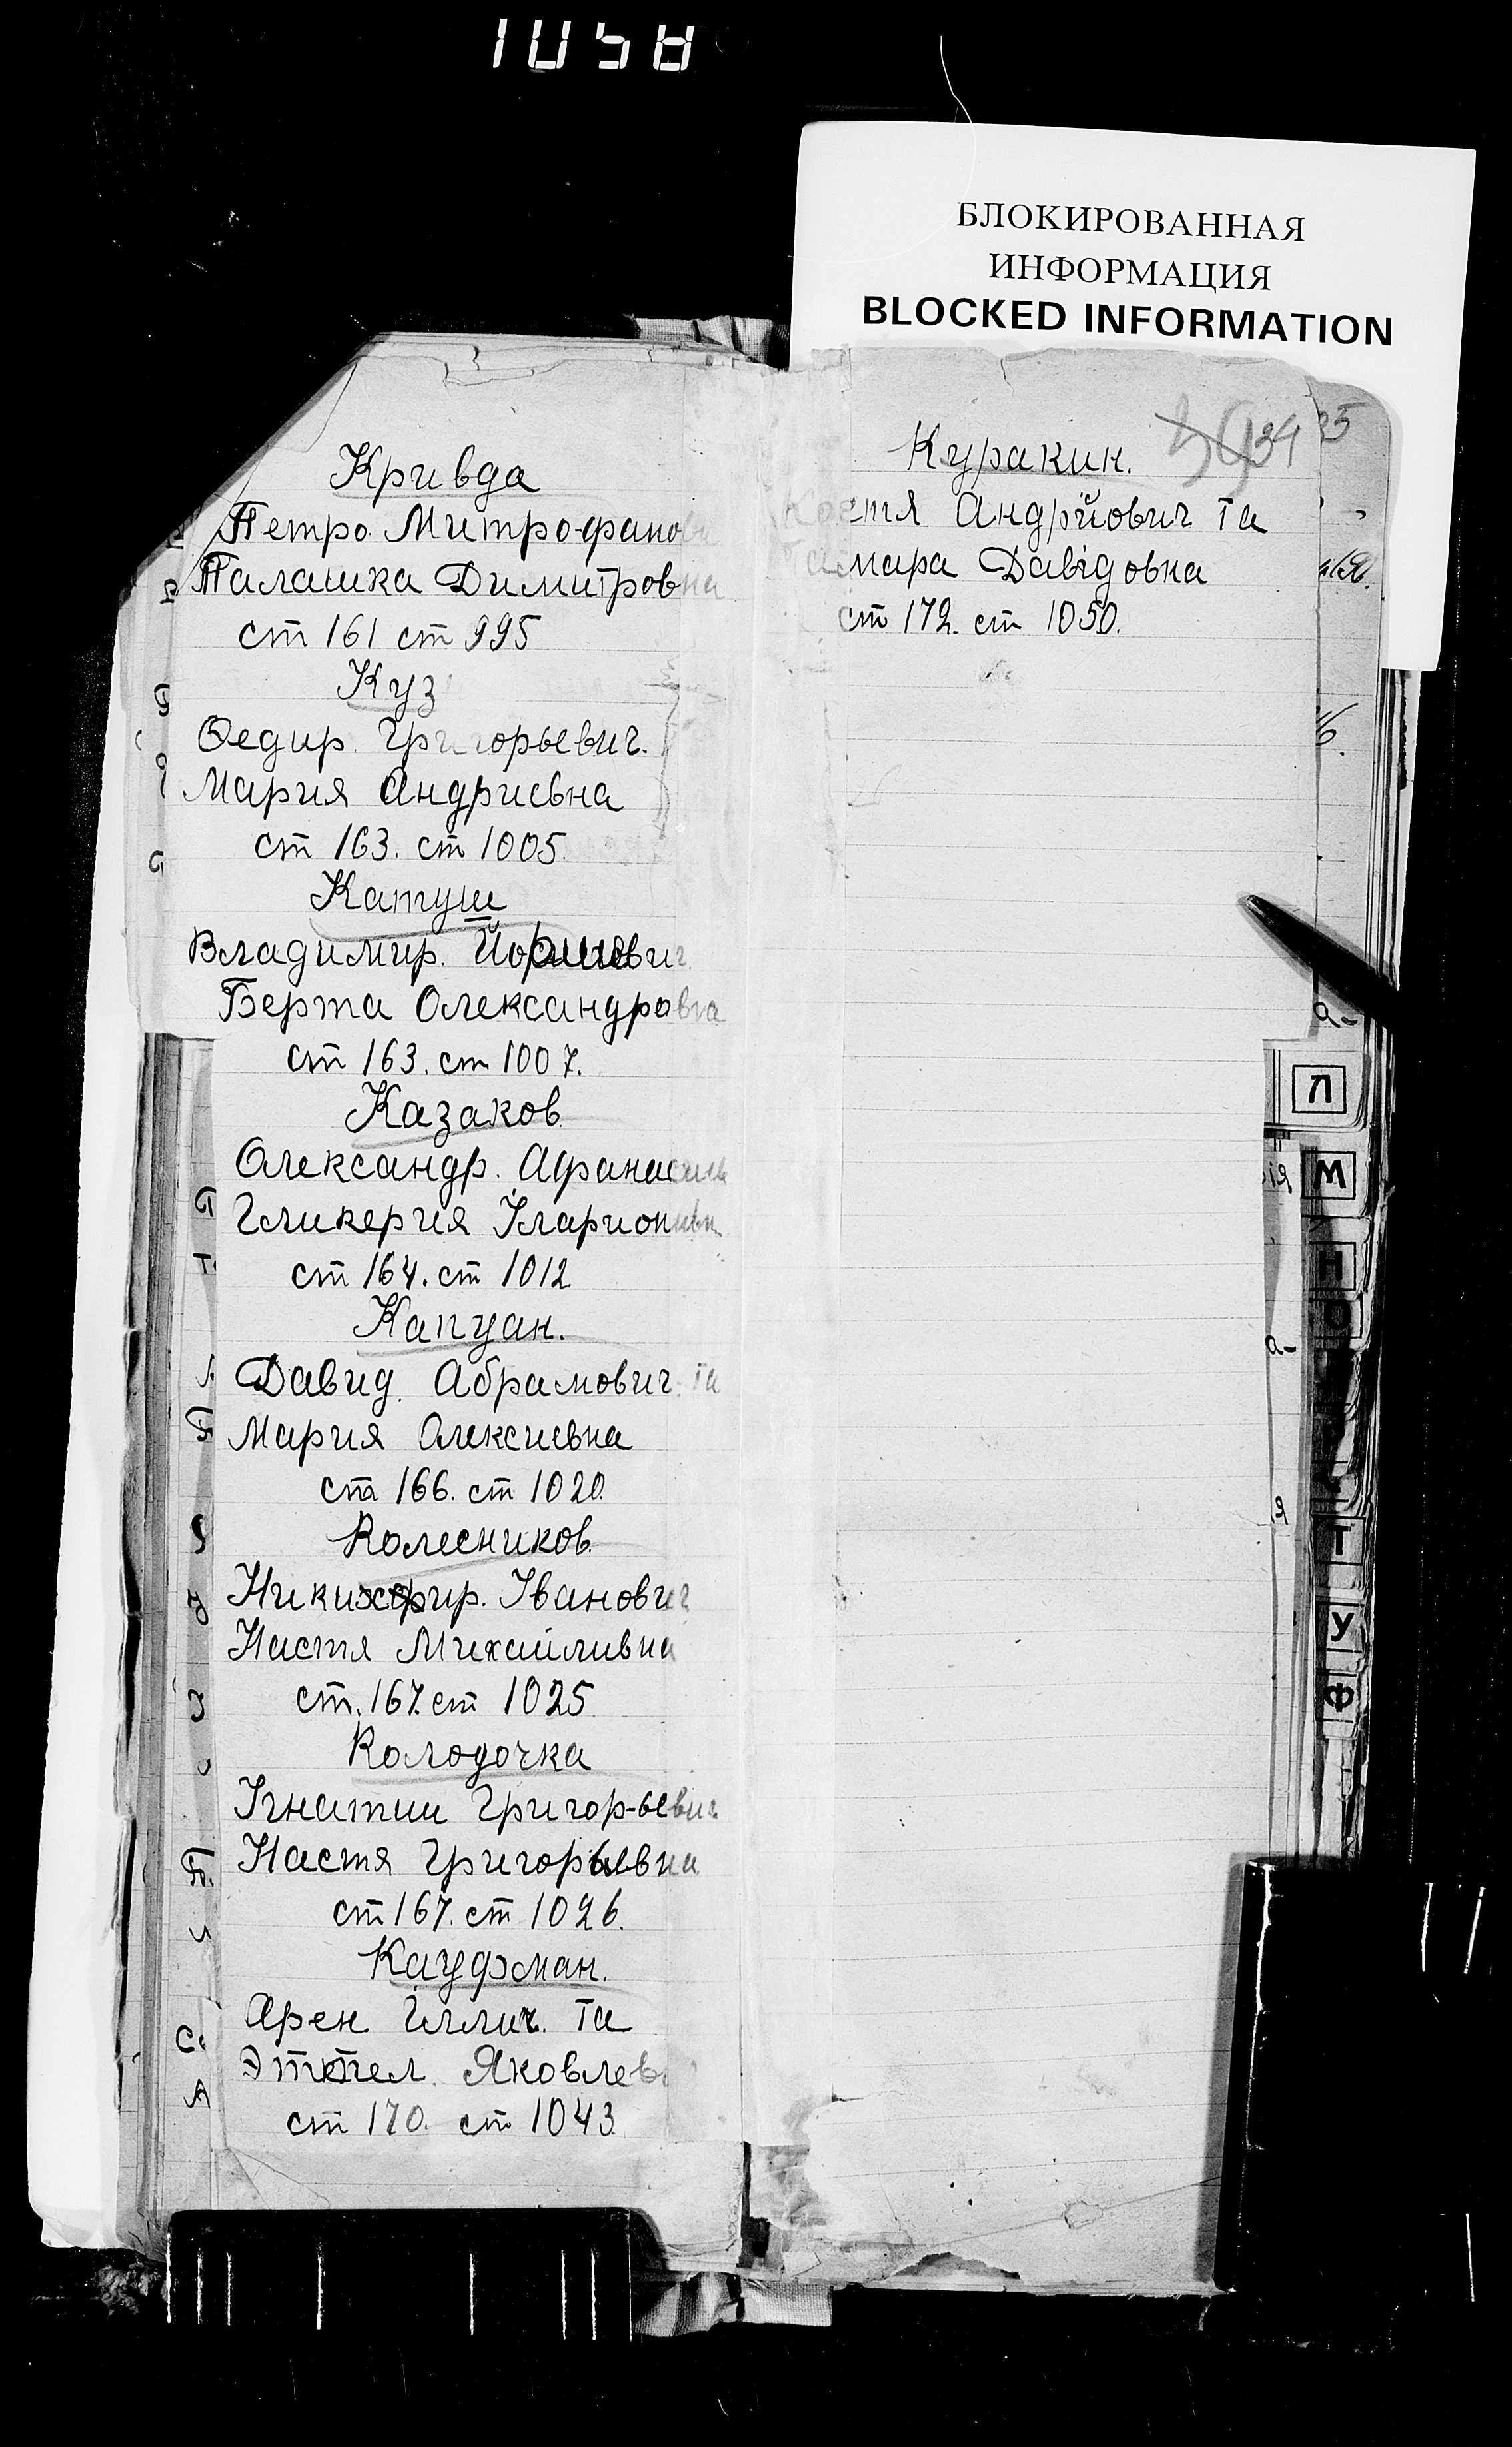 1058
БЛОКИРОВАННАЯ
ИНФОРМАЦИЯ
BLOCKED INFORMATION
Кривда
Петро. Митрофанови
Палашка Димитровна
ст 161 ст 995
Куз
Федир. Григорьевич.
Мария Андриевна
ст 163. ст 1005.
Катуш
Владимир.
Берта Олександровна
ст 163. ст 1007.
Казаков.
Олександр. Афанасиев
Гликерия Іларионивн
ст 164. ст 1012
Капуан.
Давид. Абрамович та
Мария Олексиевна
ста 166. ст 1020.
Колесников.
Никихфир. Іванович
Настя Михайливна
ст. 167. ст 1025
Колодочка
Ігнатии Григор-ьевич
Настя Григорьевна
ст 167. ст 1026.
Кауфман.
Арен Іллич. та
Яковлев
ст 170. ст 1043.
34
Куракин.
Костя Андрійович та
Тамара Давідовна
ст 172. ст 1050.
35
Л
М
Н
О
Т
У
Ф